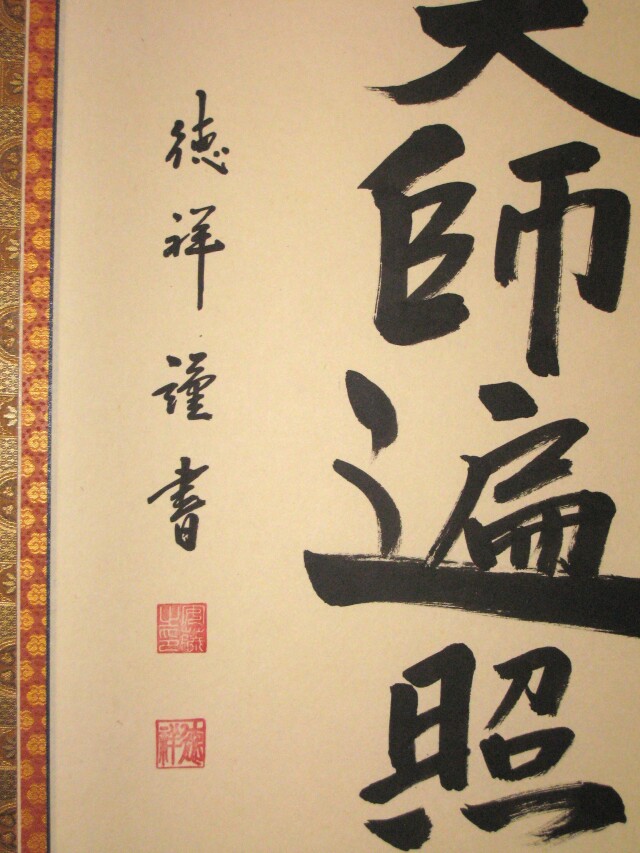 大師遍照
徳祥謹書
徳祥